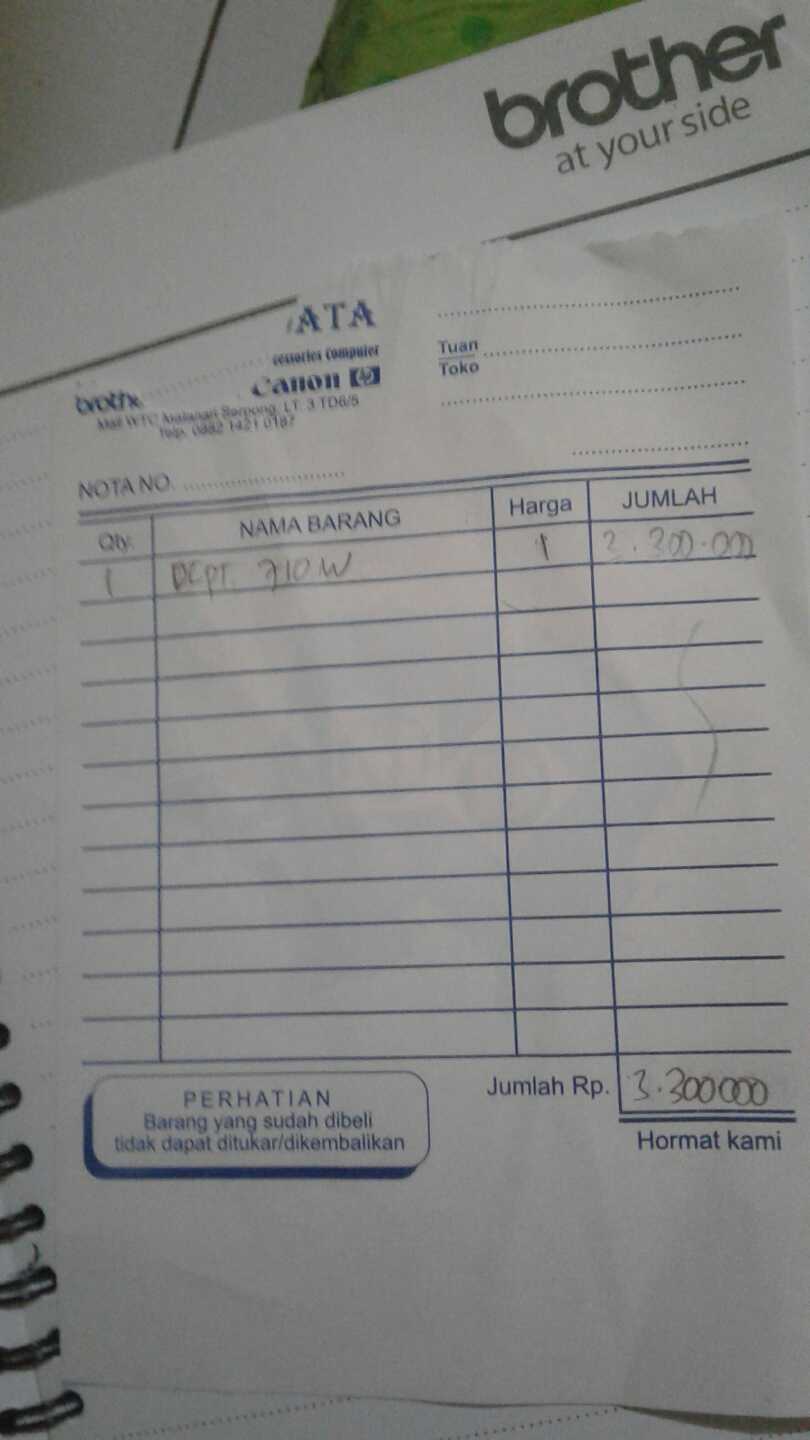 brother
at your side
ATA
cessories computer
brothe
Canon hp
Mall WTC Matahari Serpong, LT. 3 TD6/5
Telp. 0882 1421 0187
Tuan
Toko
NOTA NO.
Qty. NAMA BARANG Harga JUMLAH
1 DCPT. 710W 1 3.300.000
Jumlah Rp. 3.300000
PERHATIAN
Barang yang sudah dibeli
tidak dapat ditukar/dikembalikan
Hormat kami